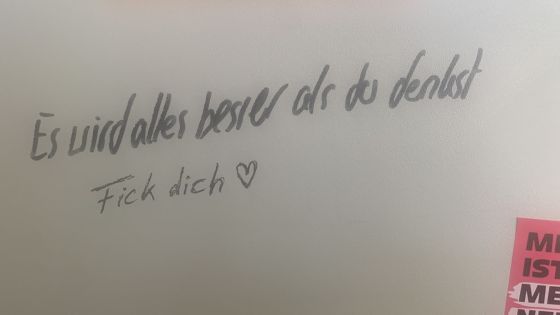 Es wird alles besser als du denkst
Fick dich ♡
IST